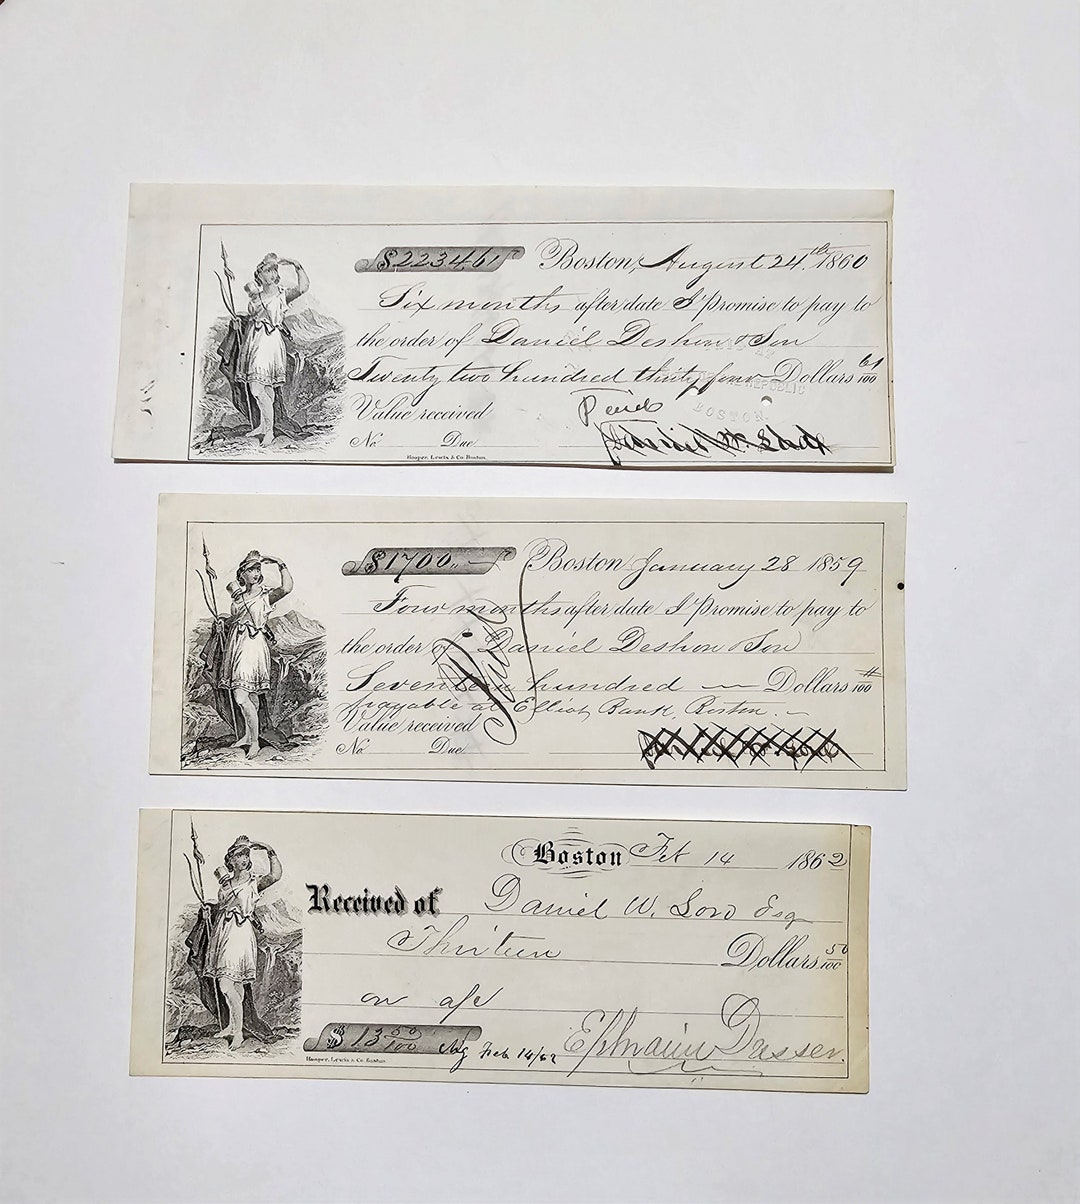 $2234.61 Boston, August 24th 1860
Six months after date I Promise to pay to
the order of Daniel Deshon & Son
Twenty two hundred thirty four Dollars 61/100
Value received Paid
BOSTON.
No. Due
Hooper, Lewis & Co. Boston.
$1700.. Boston January 28 1859
Four months after date I Promise to pay to
the order of Daniel Deshon & Son
Seventeen hundred Dollars /100
payable at Elliot Bank, Boston.
Value received
No. Due
Paid
Boston Feb 14 1862
Received of Daniel W. Lord Esq
Thirteen Dollars 50/100
on a/c
$13 50/100 Feb 14/62 Ephraim
Hooper, Lewis & Co. Boston